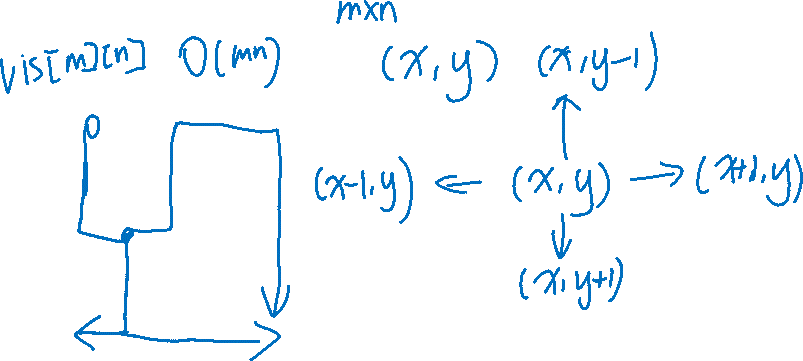 m×n
vis[m][n] O(mn) (x,y) (x,y-1)
(x-1,y) ← (x,y) → (x+1,y)
(x,y+1)